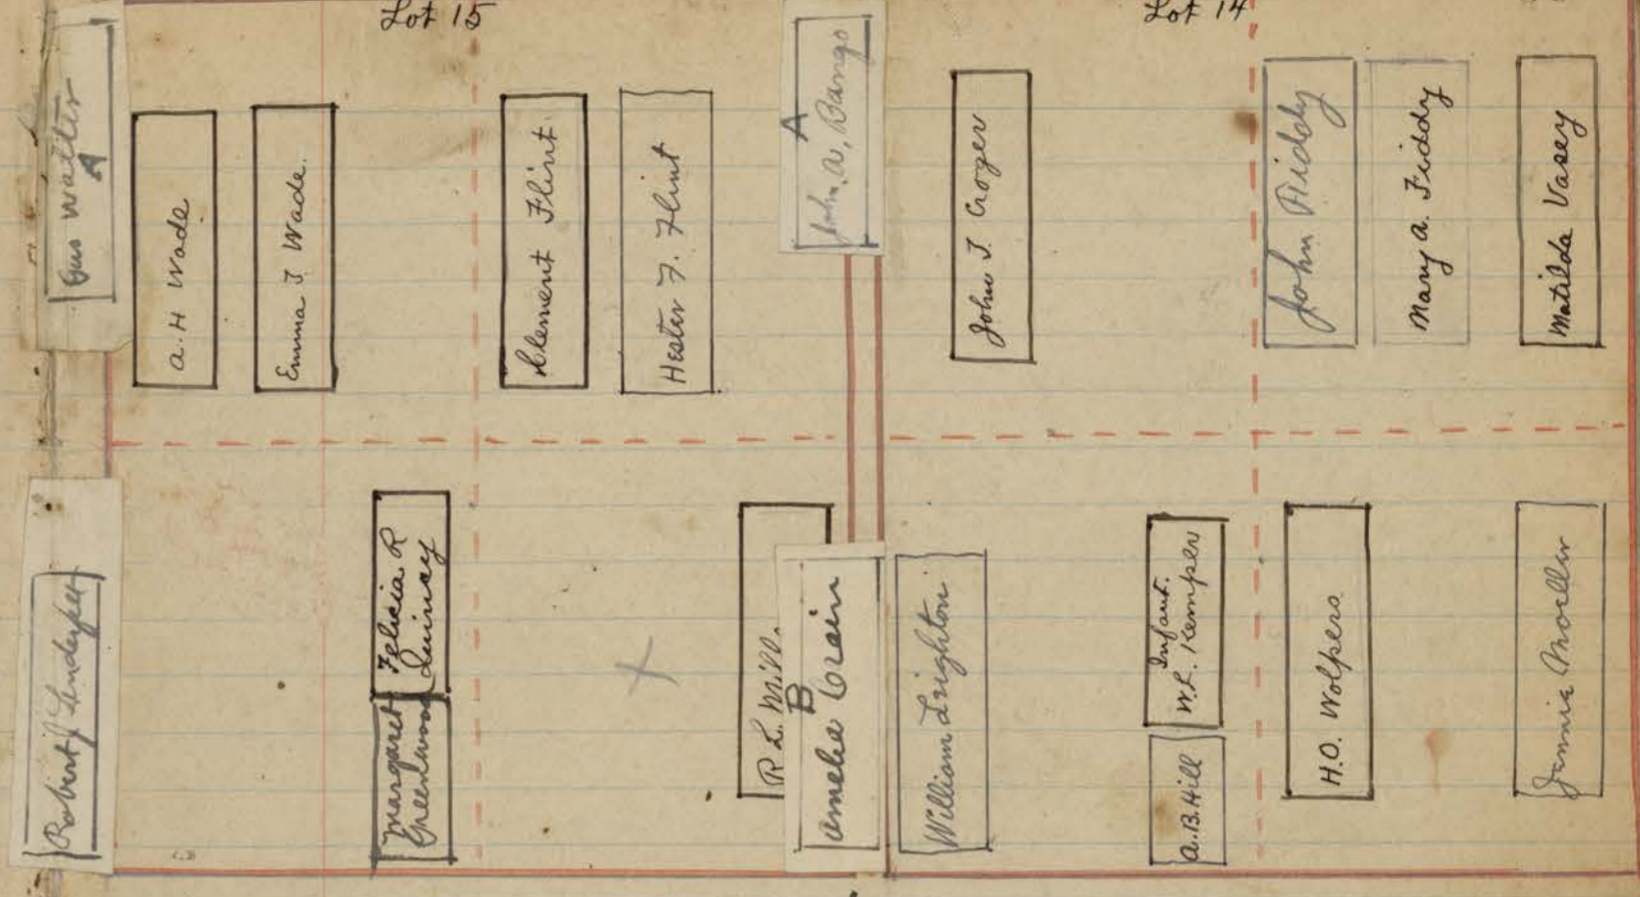 Lot 15
Lot 14
Gus Walter
A
A. H Wade
Emma J Wade.
Clement Flint
Hester F. Flint
A
John, A, Bangs
John T. Crozer
John Fiddy
Mary A. Fiddy
Matilda Vasey
Robert
Felicia R
Quincy
Margaret
Greenwood
X
R L. Mill.
B
Amelia Crain
William Leighton
Infant.
W.L. Kemper
A.B. Hill
H.O. Wolpers
Jennie Moeller